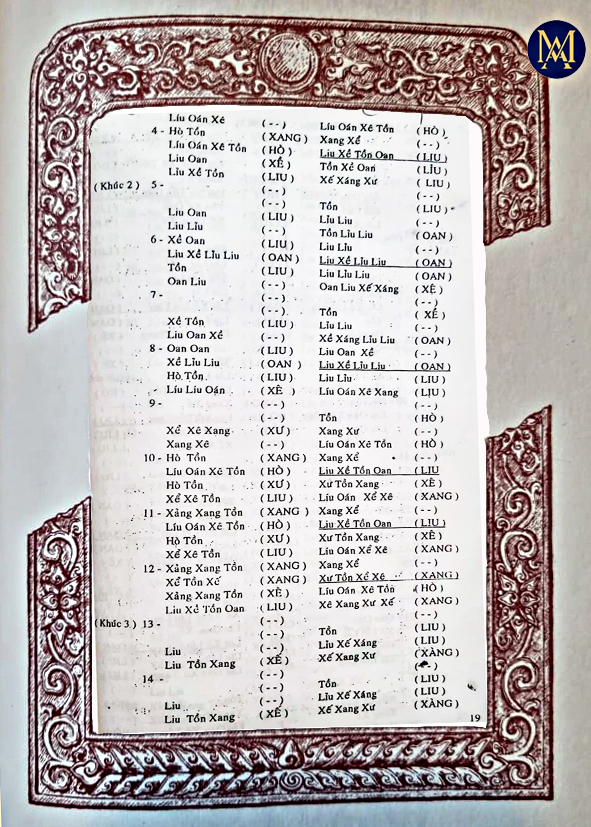 MA
Líu Oán Xê (--) Líu Oán Xê Tồn (HÒ)
4 - Hò Tồn (XANG) Xang Xể (--)
Líu Oán Xê Tồn (HÒ) Liu Xề Tồn Oan (LIU)
Liu Oan (XỀ) Tồn Xề Oan (LỈU)
Liu Xề Tồn (LIU) Xế Xáng Xư (LIU)
(Khúc 2) 5 - (--) (--)
(--) Tồn (LIU)
Liu Oan (LIU) Lỉu Liu (--)
Liu Lỉu (--) Tồn Lỉu Liu (OAN)
6 - Xề Oan (LIU) Liu Lỉu (--)
Liu Xề Lỉu Liu (OAN) Liu Xề Lỉu Liu (OAN)
Tồn (LIU) Liu Lỉu Liu (OAN)
Oan Liu (--) Oan Liu Xế Xáng (XÊ)
7 - (--) (--)
(--) Tồn (XỀ)
Xề Tồn (LIU) Lỉu Liu (--)
Liu Oan Xề (--) Xề Xáng Lỉu Liu (OAN)
8 - Oan Oan (LIU) Liu Oan Xề (--)
Xề Lỉu Liu (OAN) Liu Xề Lỉu Liu (OAN)
Hò Tồn (LIU) Liu Lỉu (LIU)
Líu Líu Oán (XÊ) Líu Oán Xê Xang (LỊU)
9 - (--) (--)
(--) Tồn (HÒ)
Xể Xê Xang (XƯ) Xang Xư (--)
Xang Xê (--) Líu Oán Xê Tồn (HÒ)
10 - Hò Tồn (XANG) Xang Xể (--)
Líu Oán Xê Tồn (HÒ) Liu Xề Tồn Oan (LIU
Hò Tồn (XƯ) Xư Tồn Xang (XÊ)
Xể Xê Tồn (LIU) Líu Oán Xể Xê (XANG)
11 - Xảng Xang Tồn (XANG) Xang Xể (--)
Líu Oán Xê Tồn (HÒ) Liu Xề Tồn Oan (LIU)
Hò Tồn (XƯ) Xư Tồn Xang (XÊ)
Xể Xê Tồn (LIU) Líu Oán Xể Xê (XANG)
12 - Xảng Xang Tồn (XANG) Xang Xể (--)
Xể Tồn Xế (XANG) Xư Tồn Xể Xê (XANG)
Xảng Xang Tồn (XÊ) Líu Oán Xê Tồn (HÒ)
Liu Xề Tồn Oan (LIU) Xê Xang Xư Xế (XANG)
(Khúc 3) 13 - (--) (--)
(--) Tồn (LIU)
Liu (--) Lỉu Xế Xáng (LIU)
Liu Tồn Xang (XÊ) Xế Xang Xư (XÀNG)
14 - (--) (--)
(--) Tồn (LIU)
Liu (--) Lỉu Xế Xáng (LIU)
Liu Tồn Xang (XÊ) Xế Xang Xư (XÀNG)
19